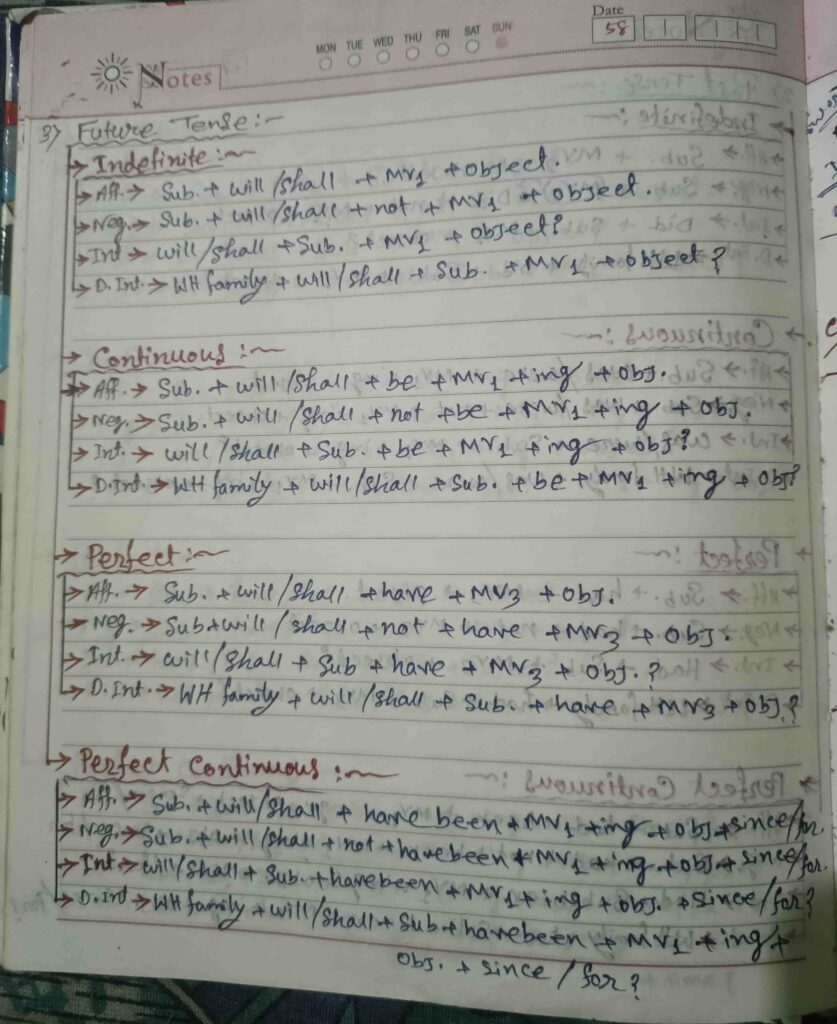 Date
58
MON TUE WED THU FRI SAT SUN
Notes
3) Future Tense:-
→ Indefinite:~
→ Aff.→ Sub. + will/shall + MV1 + object.
→ Neg.→ Sub. + will/shall + not + MV1 + object.
→ Int → will/shall + Sub. + MV1 + object?
→ D. Int.→ WH family + will/shall + Sub. + MV1 + object?
→ Continuous:~
→ Aff.→ Sub. + will/shall + be + MV1 + ing + obj.
→ Neg.→ Sub. + will/shall + not + be + MV1 + ing + obj.
→ Int.→ will/shall + Sub. + be + MV1 + ing + obj?
→ D. Int → WH family + will/shall + Sub. + be + MV1 + ing + obj?
→ Perfect:~
→ Aff.→ Sub. + will/shall + have + MV3 + obj.
→ Neg.→ Sub + will/shall + not + have + MV3 + obj.
→ Int.→ will/shall + Sub + have + MV3 + obj.?
→ D. Int.→ WH family + will/shall + Sub. + have + MV3 + obj.?
→ Perfect Continuous:~
→ Aff.→ Sub. + will/shall + have been + MV1 + ing + obj + since/for.
→ Neg.→ Sub. + will/shall + not + have been + MV1 + ing + obj. + since/for.
→ Int → will/shall + Sub. + have been + MV1 + ing + obj. + since/for?
→ D. Int → WH family + will/shall + Sub + have been + MV1 + ing +
obj. + since/for?